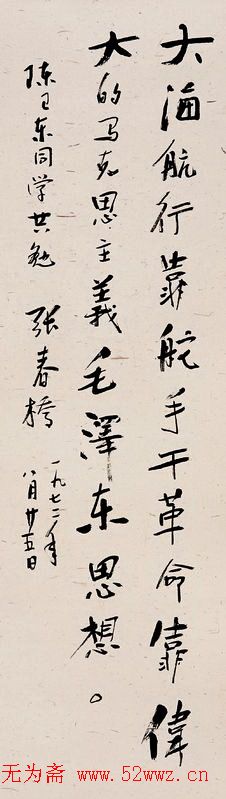 大海航行靠舵手干革命靠偉
大的马克思主義毛澤东思想。
陈卫东同学共勉
张春橋
一九七三年
八月廿五日
无为斋 www.52wwz.cn